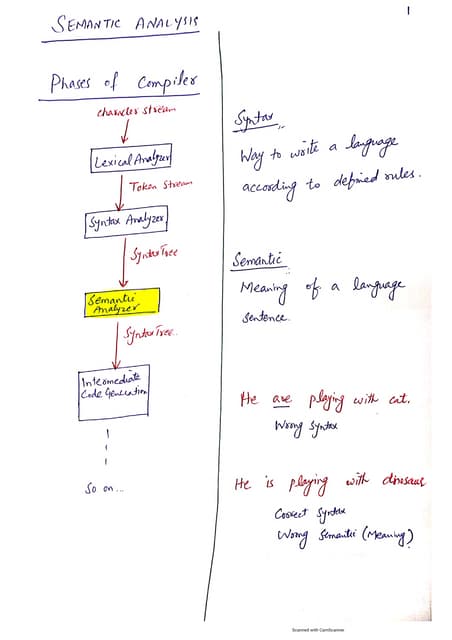 SEMANTIC ANALYSIS
1
Phases of Compiler
character stream
Lexical Analyzer
Token Stream
Syntax Analyzer
SyntaxTree
Semantic
Analyzer
SyntaxTree
Intermediate
Code Generation
So on...
Syntax
Way to write a language
according to defined rules.
Semantic
Meaning of a language
sentence.
He are playing with cat.
Wrong Syntax
He is playing with dinosaur
Correct Syntax
Wrong Semantic (Meaning)
Scanned with CamScanner